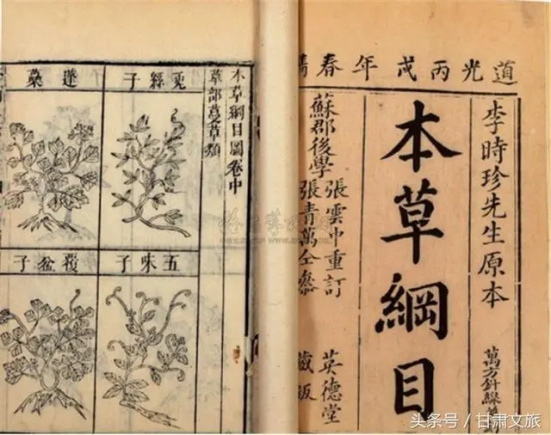 道光丙戌年春
李時珍先生原本
萬方針線
本草綱目
蘇郡後學
張雲中重訂
張青萬仝參
英德堂
藏版
本草綱目圖卷中
草部蔓草類
兎絲子
蓬蘽
五味子
覆盆子
头条号 / 甘肃文旅